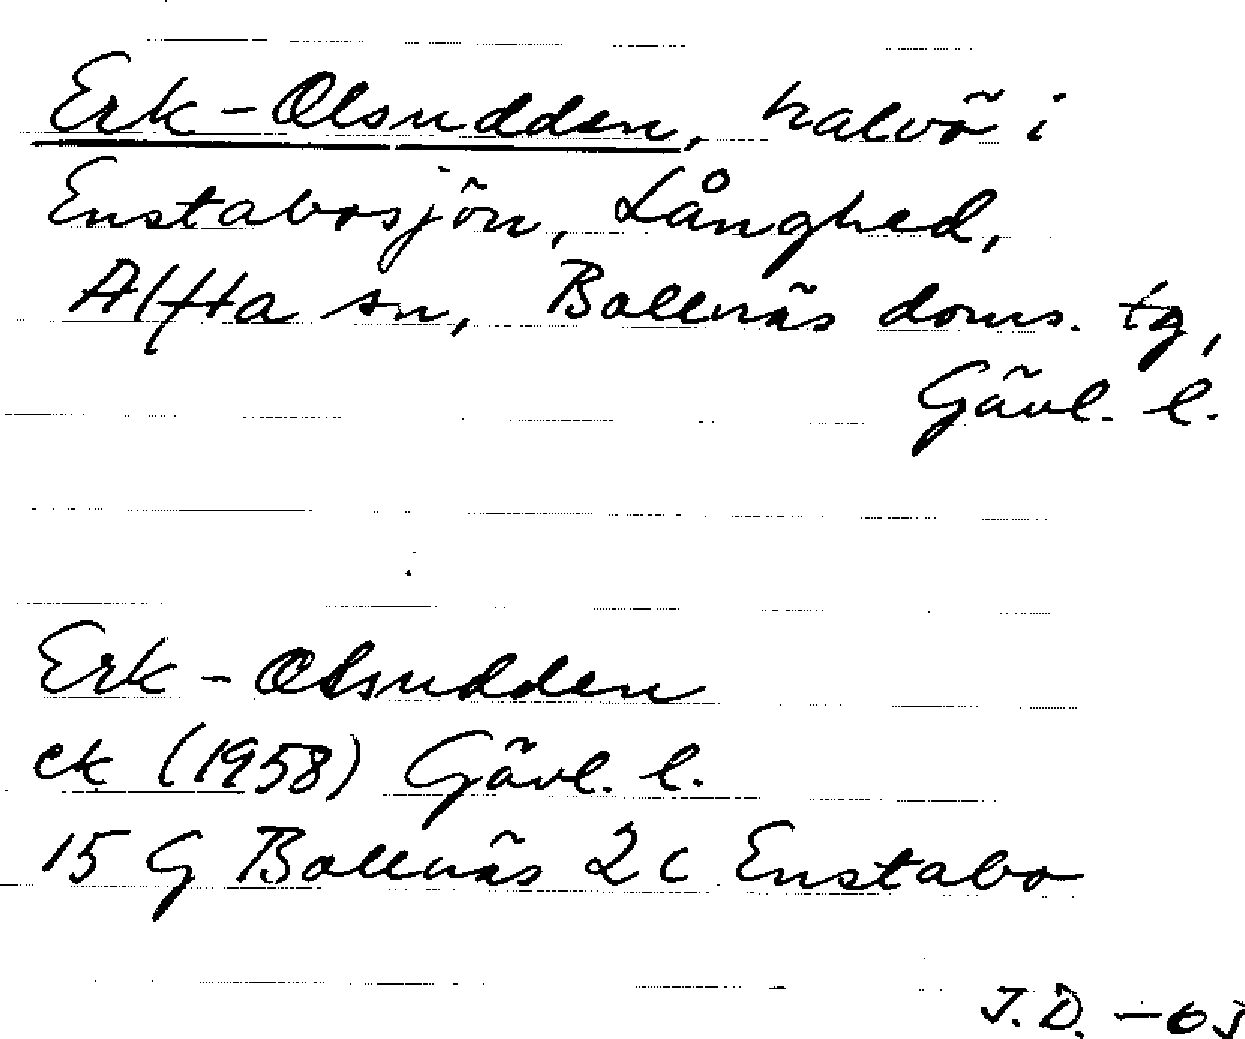 Erk-Olsudden, halvö i
Enstabosjön, Långhed,
Alfta sn, Bollnäs doms. tg,
Gävl. l.
Erk-Olsudden
ek (1958) Gävl. l.
15 G Bollnäs 2c Enstabo
J.D. -63